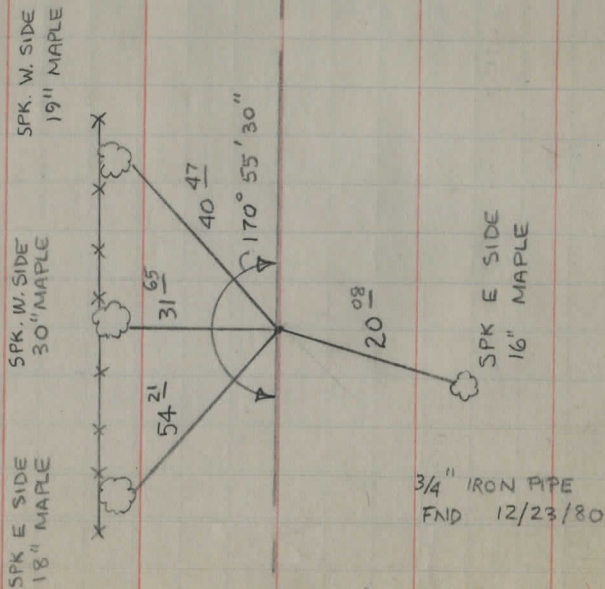 SPK E SIDE
18" MAPLE
SPK. W. SIDE
30" MAPLE
SPK. W. SIDE
19" MAPLE
54 21
31 65
40 47
170° 55' 30"
20 08
SPK E SIDE
16" MAPLE
3/4" IRON PIPE
FND 12/23/80